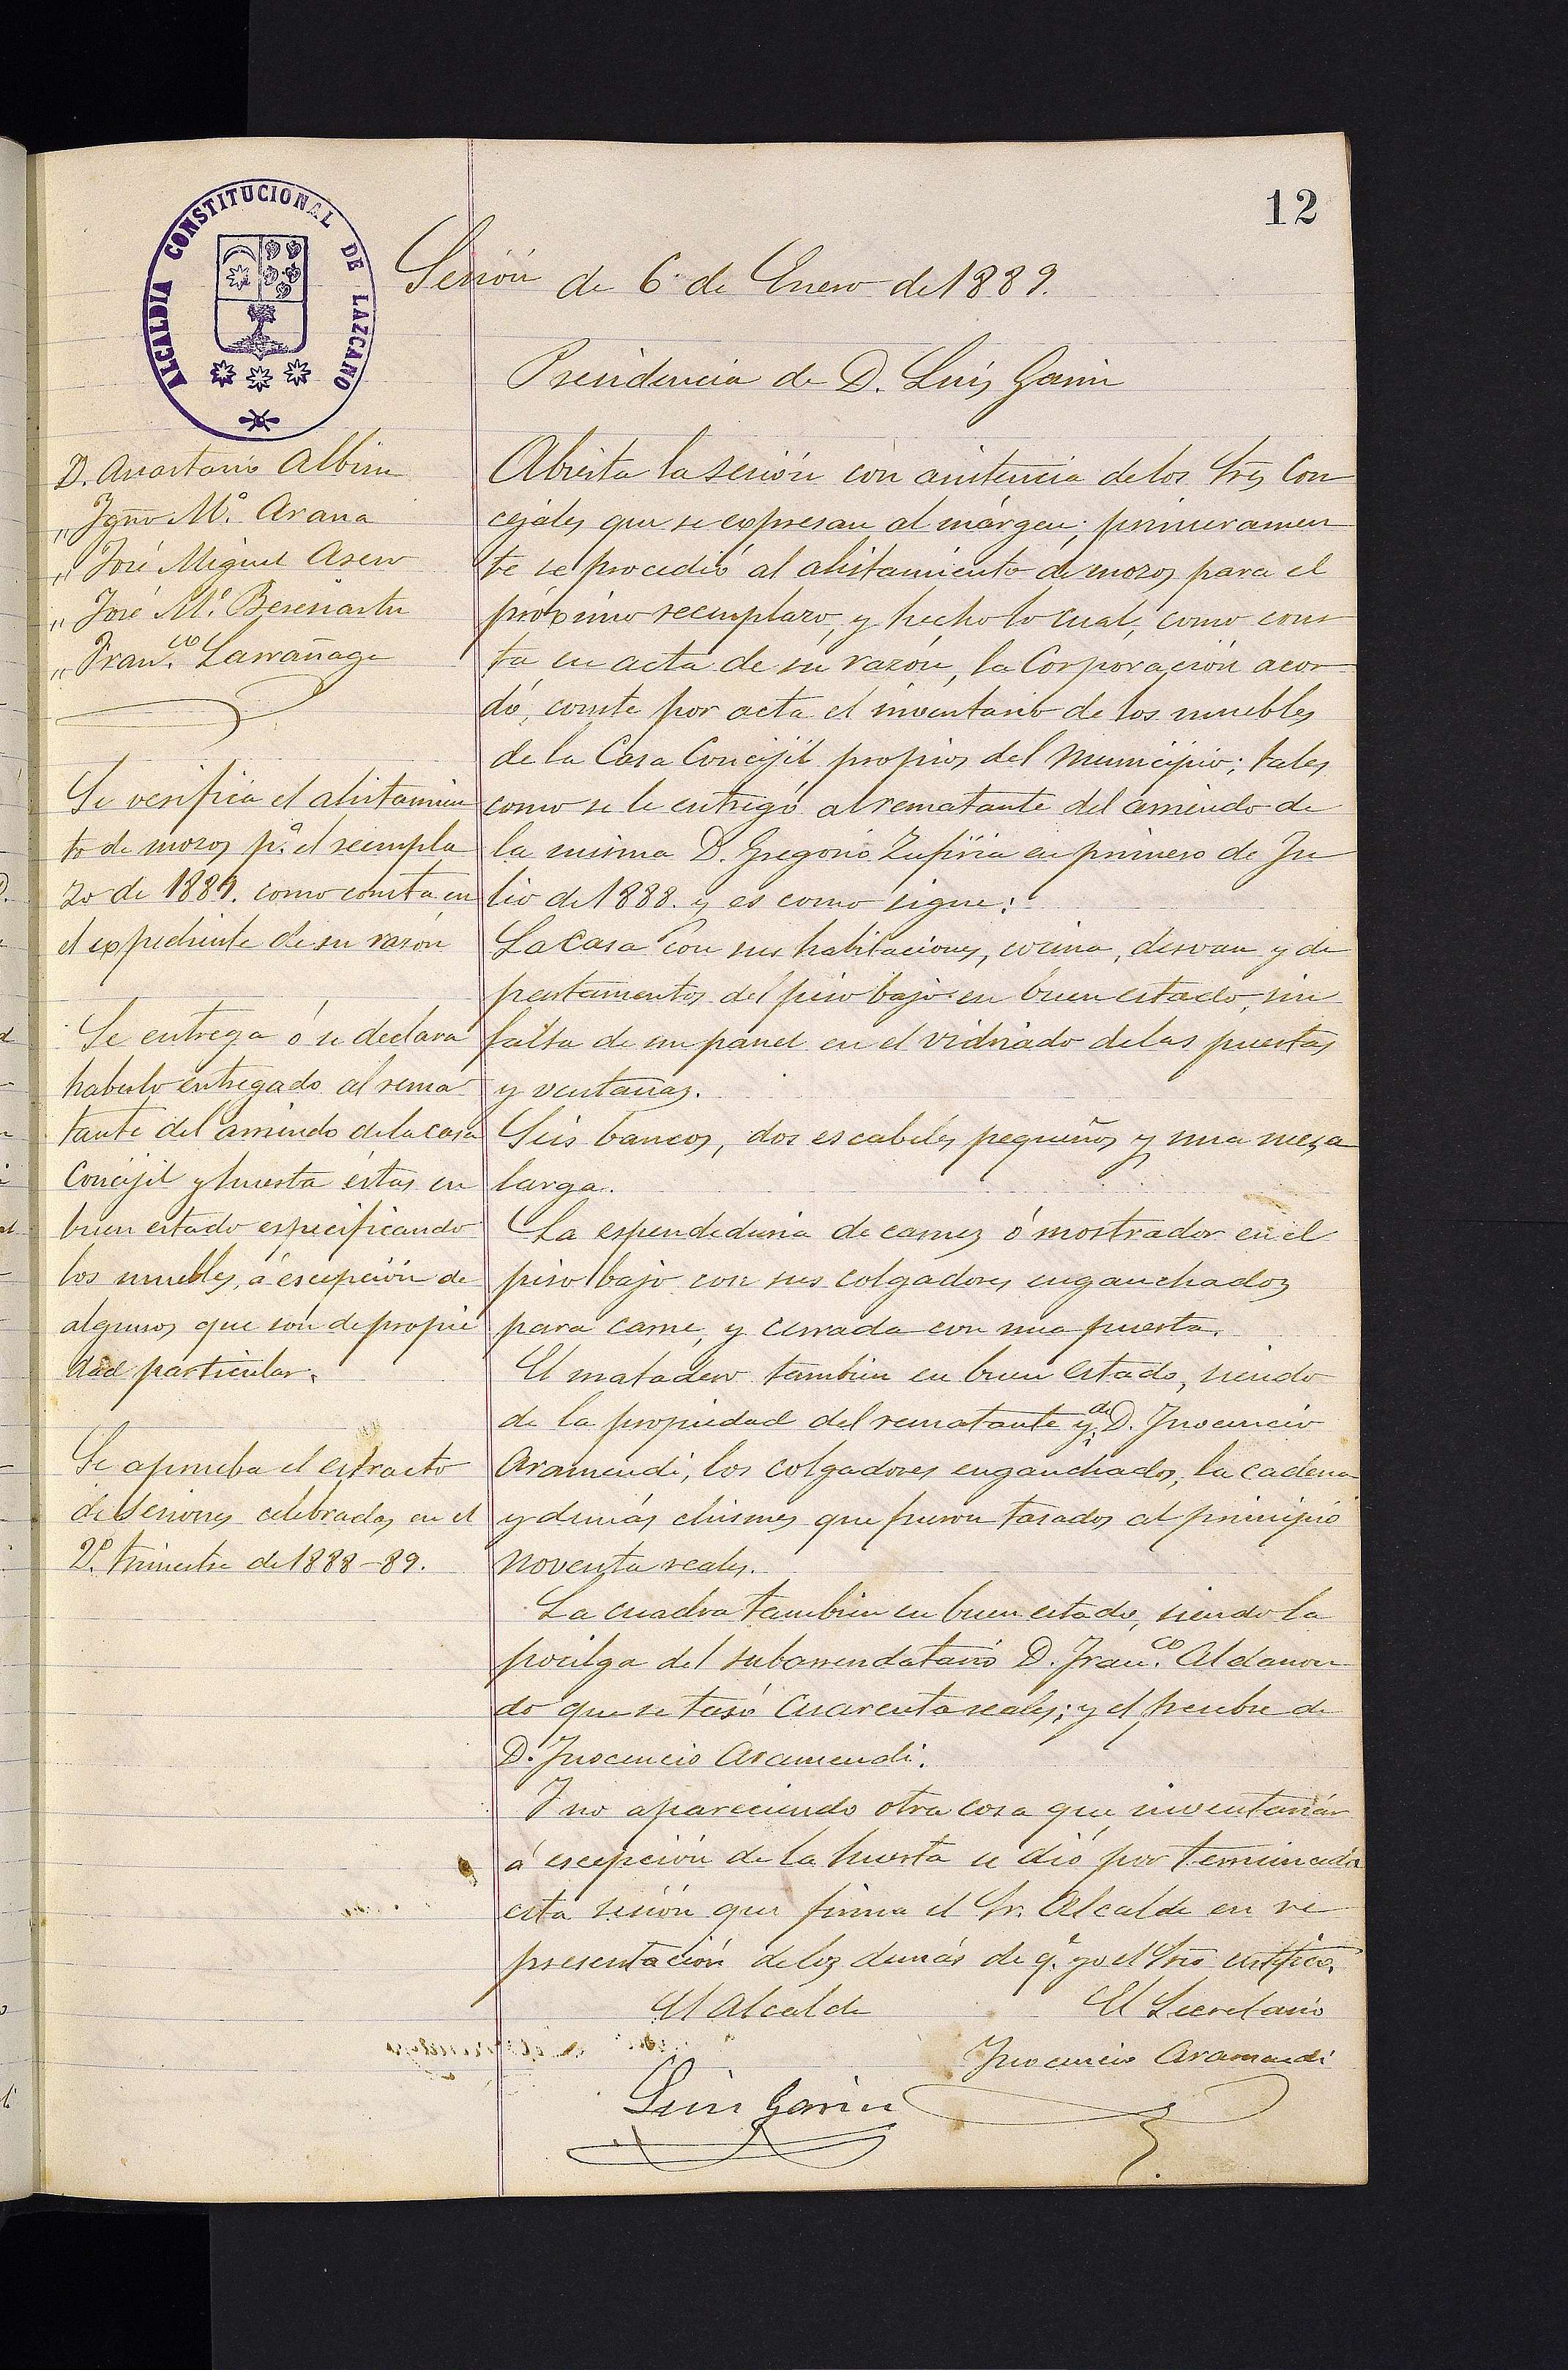 12
ALCALDIA CONSTITUCIONAL DE LAZCANO
Sesión de 6 de Enero de 1889.
Presidencia de D. Luis Garin
D. Anastasio Albisu
" Ygnº Mª. Arana
" José Miguel Asero
" José Mª. Beresiartu
" Franco. Larrañaga
Se verifica el alistamien
to de mozos pª. el reempla
zo de 1889. como consta en
el expediente de su razón
Se entrega ó se declara
haberlo entregado al rema
tante del arriendo de la casa
Concejil y huerta éstas en
buen estado especificando
los muebles, á escepción de
algunos que son de propie
dad particular.
Se aprueba el estracto
de sesiones celebradas en el
2º. trimestre de 1888-89.
Abierta la sesión con asistencia de los Sres Con
cejales que se expresan al márgen; primeramen
te se procedió al alistamiento de mozos para el
próximo reemplazo, y hecho lo cual, como cons
ta en acta de su razón, la Corporación acor
dó, conste por acta el inventario de los muebles
de la Casa Concejil propios del Municipio; tales
como se le entregó al rematante del arriendo de
la misma D. Gregorio Zufiria en primero de Ju
lio de 1888. y es como sigue:
La Casa con sus habitaciones, cocina, desvan y de
partamentos del piso bajo en buen estado, sin
falta de un panel en el vidriado de las puertas
y ventanas.
Seis bancos, dos escabeles pequeños y una mesa
larga.
La espendeduria de carnes ó mostrador en el
piso bajo con sus colgadores enganchados
para carne, y cerrada con una puerta.
El matadero tambien en buen estado, siendo
de la propiedad del rematante y de D. Ynocencio
Aramendi, los colgadores enganchados, la cadena
y demás chismes que fueron tasados al principio
noventa reales.
La cuadra tambien en buen estado, siendo la
pocilga del subarrendatario D. Franco. Aldanon
do que se tasó cuarenta reales; y el pesebre de
D. Ynocencio Aramendi.
Y no apareciendo otra cosa que inventariar
á escepción de la huerta se dió por terminada
esta sesión que firma el Sr. Alcalde en re
presentación de los demás de q. yo el Srio certifico.
El Alcalde
El Secretario
Ynocencio Aramendi
Luis Garin